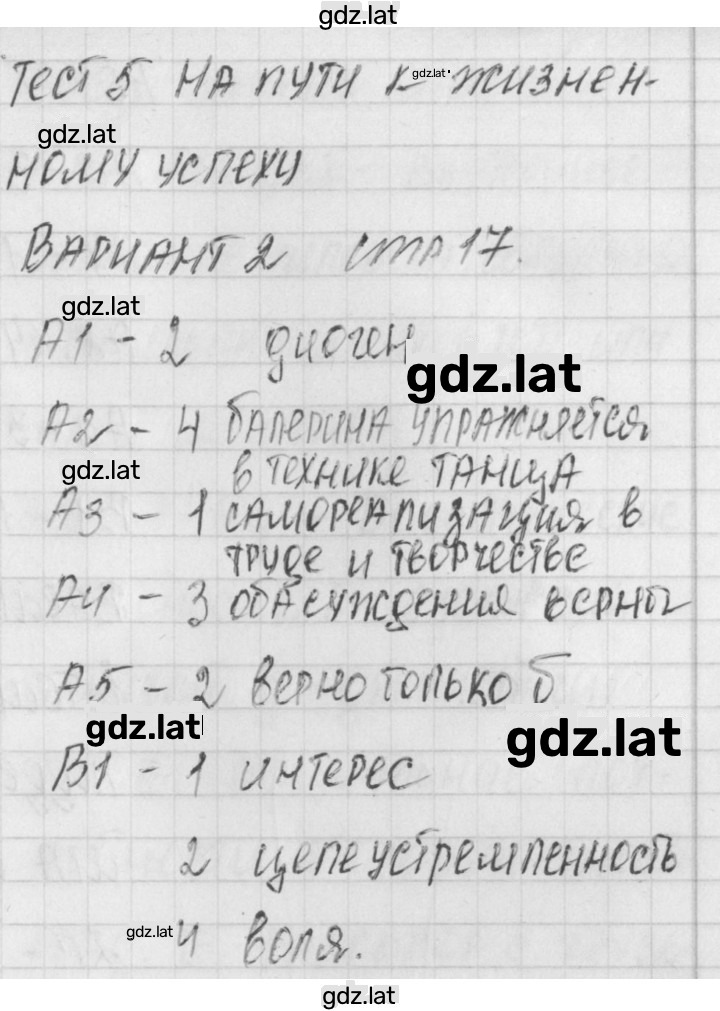 gdz.lat
Тест 5 На пути к жизнен-
gdz.lat
gdz.lat
ному успеху
Вариант 2 стр 17.
gdz.lat
А1 - 2 Диоген
gdz.lat
А2 - 4 балерина упражняется
в технике танца
gdz.lat
А3 - 1 самореализация в
труде и творчестве
А4 - 3 оба суждения верны
А5 - 2 верно только б
gdz.lat
gdz.lat
В1 - 1 интерес
2 целеустремленность
gdz.lat
4 воля.
gdz.lat